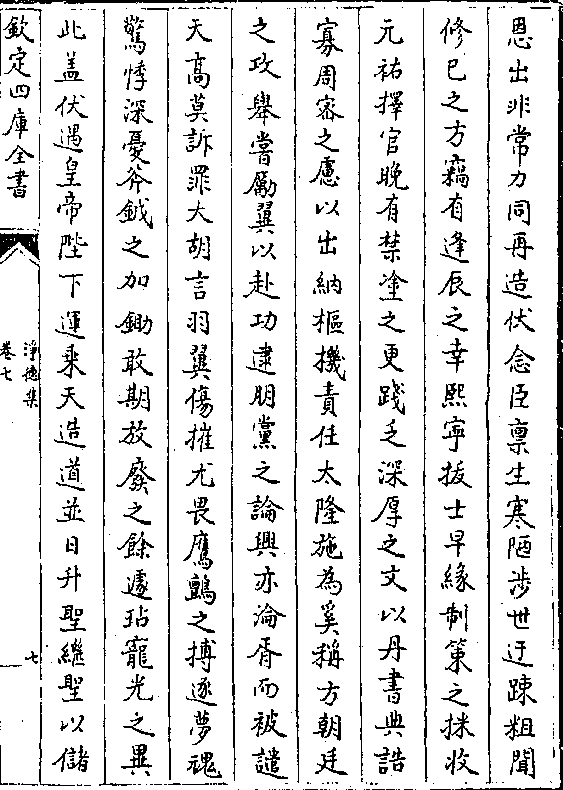 恩出非常力同再造伏念臣禀生寒陋涉世迂踈粗聞
修已之方竊有逢辰之幸熙寧拔士早緣制策之採收
元祐擇官晚有禁塗之更踐乏深厚之文以丹書典誥
寡周宻之慮以出納樞機責任太隆施為奚稱方朝廷
之攻舉嘗勵翼以赴功逮朋黨之論興亦淪胥而被譴
天髙莫訴罪大胡言羽翼傷摧尤畏鷹鸇之搏逐夢魂
驚悸深憂斧鉞之加鋤敢期放廢之餘遽玷寵光之異
此盖伏遇皇帝陛下運乘天造道並日升聖繼聖以儲
欽定四庫全書
淨德集
卷七
七